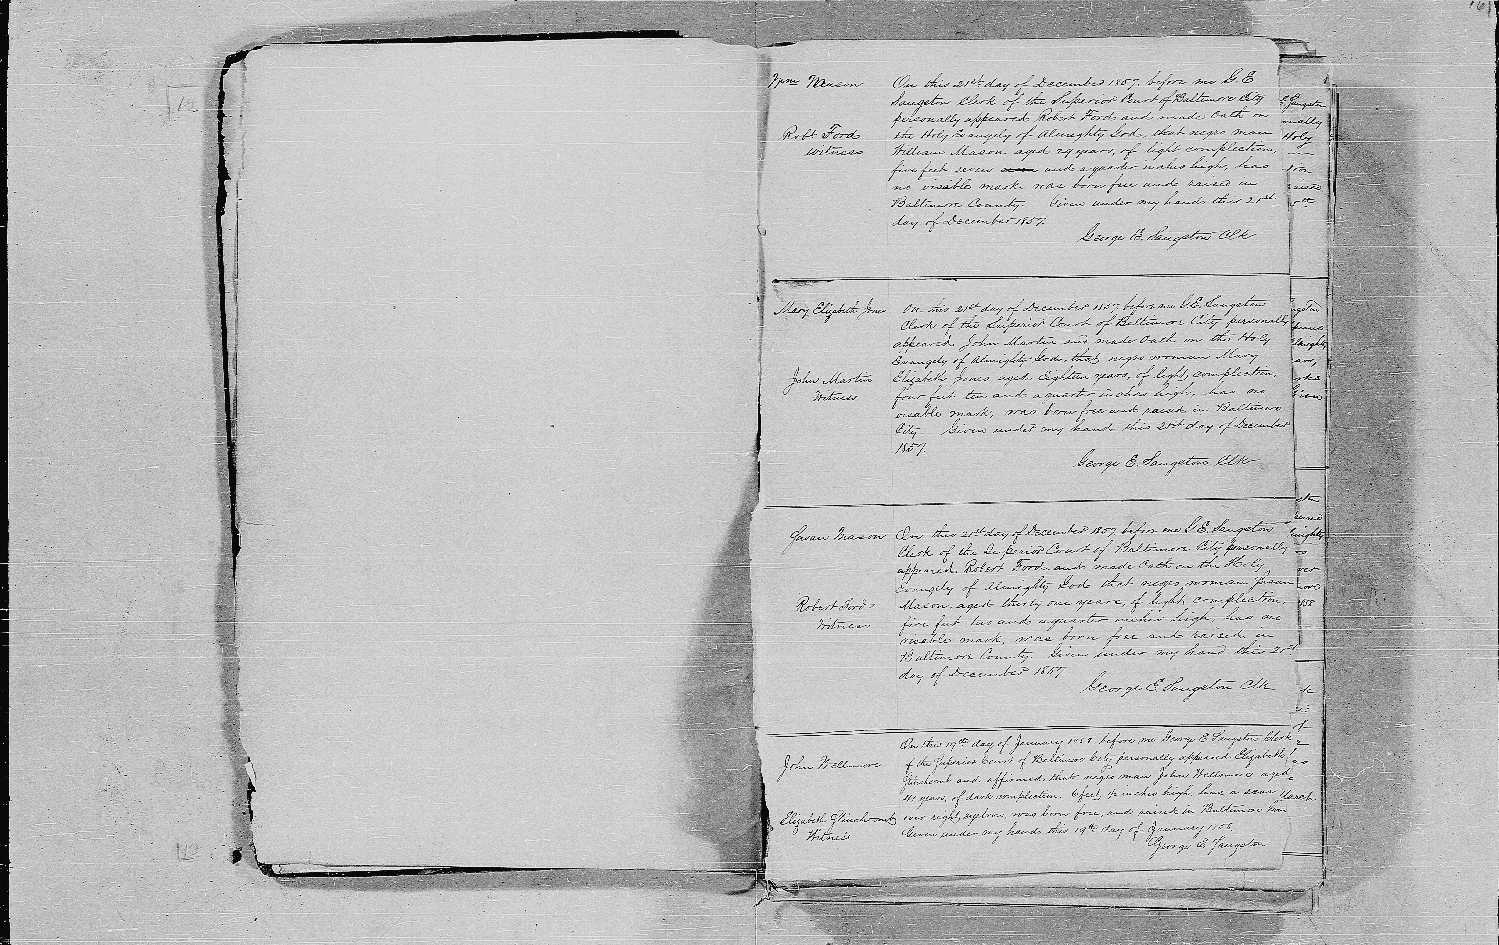 Wm Mason
On this 21st day of December 1857, before me G. E
Sangston Clerk of the Superior Court of Baltimore City
personally appeared Robert Ford and made Oath on
Robt Ford
the Holy Evangely of Almighty God, that negro man
witness
William Mason aged 29 years, of light complection,
five feet seven and a quarter inches high, has
no visable mark was born free and raised in
Baltimore County. Given under my hand this 21st
day of December 1857.
George E. Sangston Clk
Mary Elizabeth Jones
On this 21st day of December 1857, before me G. E. Sangston
Clerk of the Superior Court of Baltimore City personally
appeared John Martin and made Oath on the Holy
Evangely of Almighty God, that negro woman Mary
John Martin
Elizabeth Jones aged Eighteen years, of light complection,
Witness
four feet ten and a quarter inches high, has no
visable mark, was born free and raised in Baltimore
City Given under my hand this 21st day of December
1857.
George E. Sangston Clk
Susan Mason
On this 21st day of December 1857, before me G. E. Sangston
Clerk of the Superior Court of Baltimore City personally
appeared Robert Ford and made Oath on the Holy
Evangely of Almighty God that negro woman Susan
Robert Ford
Mason, aged thirty one years, of light complection,
Witness
five feet two and a quarter inches high, has no
visable mark, was born free and raised in
Baltimore County. Given under my hand this 21st
day of December 1857
George E. Sangston Clk
On this 19th day of January 1858 before me George E Sangston Clerk
John Wellsmore
of the Superior Court of Baltimore City personally appeared Elizabeth
and affirmed, that negro man John Wellsmore aged
years, of dark complection, 6 feet, 1/2 inches high, have a scar
Elizabeth
over right eyebrow, was born free, and raised in Baltimore
Witness
Given under my hand this 19th day of January 1858
George E. Sangston